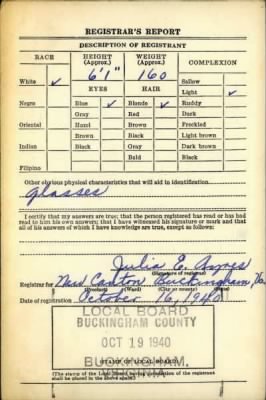 REGISTRAR'S REPORT
DESCRIPTION OF REGISTRANT
RACE HEIGHT (Approx.) WEIGHT (Approx.) COMPLEXION
White ✓ 6'1" 160 Sallow
EYES HAIR Light ✓
Negro Blue ✓ Blonde ✓ Ruddy
Gray Red Dark
Oriental Hazel Brown Freckled
Brown Black Light brown
Indian Black Gray Dark brown
Bald Black
Filipino
Other obvious physical characteristics that will aid in identification
glasses
I certify that my answers are true; that the person registered has read or has had
read to him his own answers; that I have witnessed his signature or mark and that
all of his answers of which I have knowledge are true, except as follows:
Julia E. Ayres
(Signature of registrar)
Registrar for New Canton Buckingham Va.
(Precinct) (Ward) (City or county) (State)
Date of registration October 16, 1940
LOCAL BOARD
BUCKINGHAM COUNTY
OCT 19 1940
BUCKINGHAM,
(STAMP OF LOCAL BOARD)
(The stamp of the Local Board having jurisdiction of the registrant
shall be placed in the above space)